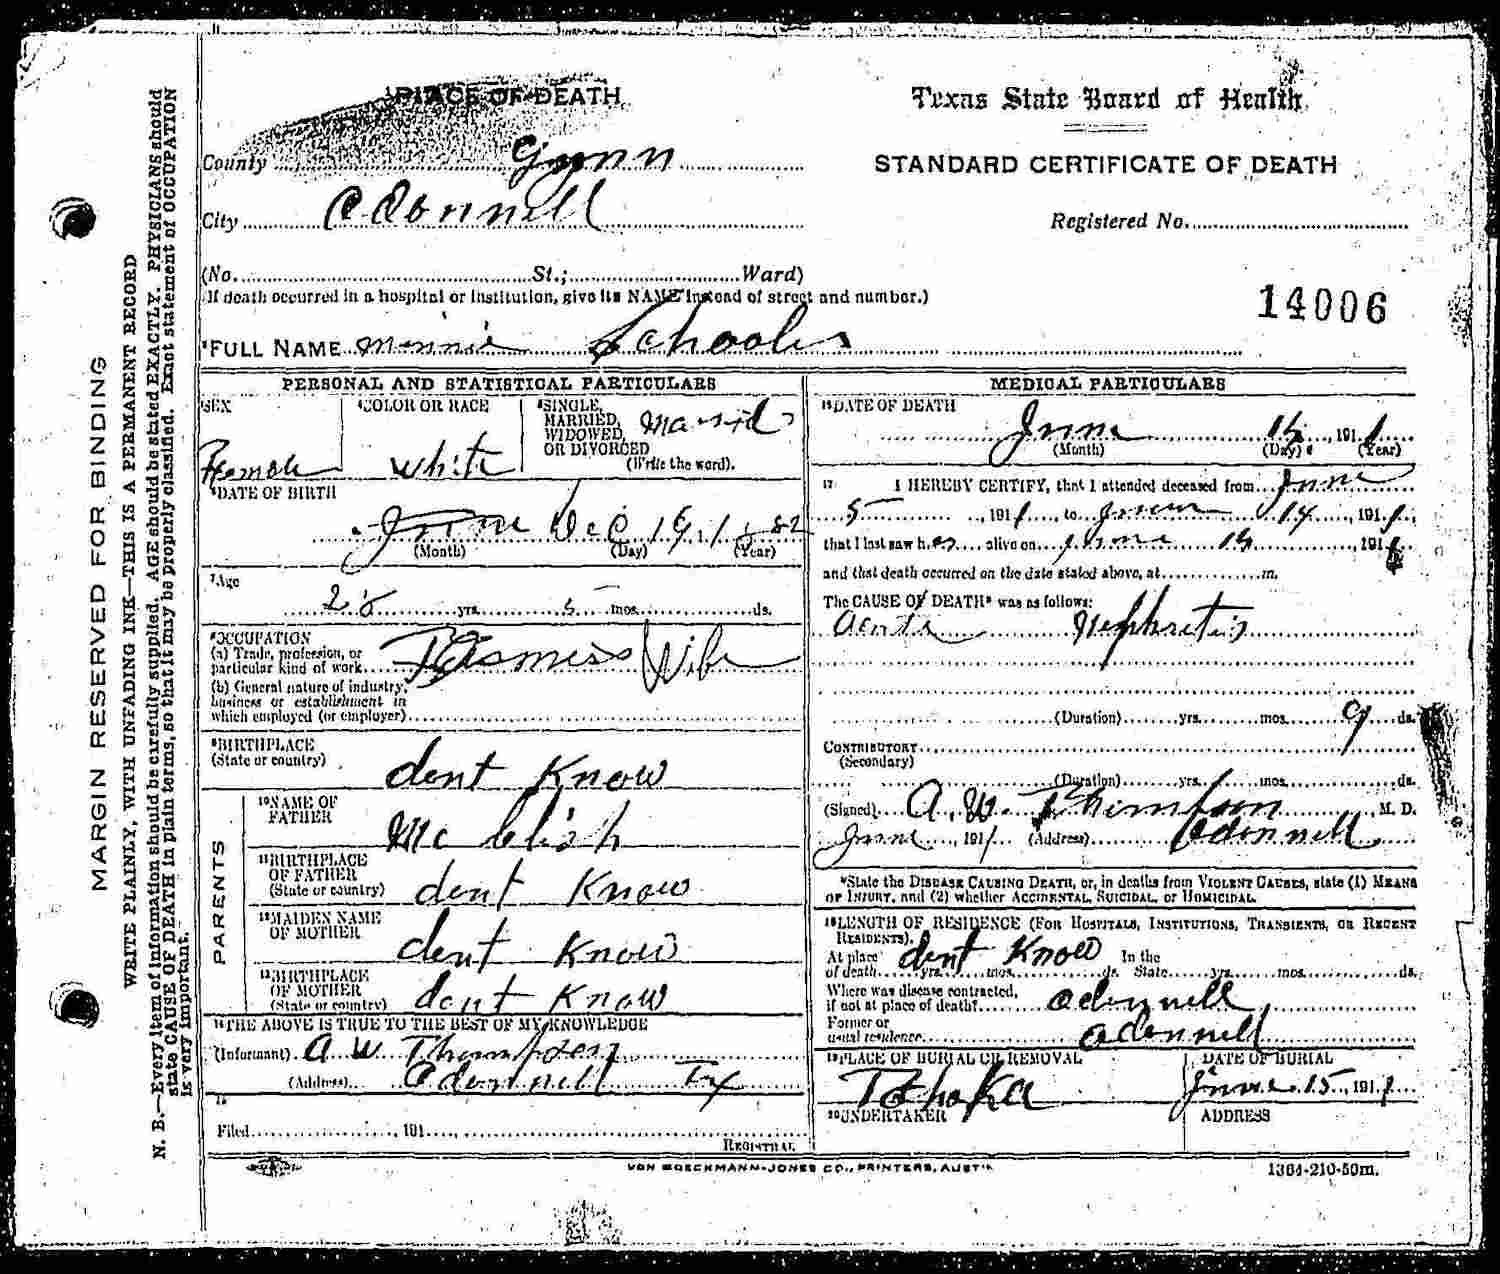 MARGIN RESERVED FOR BINDING
WRITE PLAINLY, WITH UNFADING INK—THIS IS A PERMANENT RECORD
N. B.—Every item of information should be carefully supplied. AGE should be stated EXACTLY. PHYSICIANS should
state CAUSE OF DEATH in plain terms, so that it may be properly classified. Exact statement of OCCUPATION
is very important.
PLACE OF DEATH
County Lynn
City Odonnell
(No. St.; Ward)
(If death occurred in a hospital or institution, give its NAME instead of street and number.)
Texas State Board of Health
STANDARD CERTIFICATE OF DEATH
Registered No.
14006
FULL NAME Minnie Schooler
PERSONAL AND STATISTICAL PARTICULARS
SEX
Female
COLOR OR RACE
White
SINGLE,
MARRIED,
WIDOWED,
OR DIVORCED
(Write the word).
Married
DATE OF BIRTH
June Dec 19, 1882
(Month) (Day) (Year)
Age
28 yrs. 5 mos. ds.
OCCUPATION
(a) Trade, profession, or
particular kind of work Wife
(b) General nature of industry,
business or establishment in
which employed (or employer)
BIRTHPLACE
(State or country)
dont Know
PARENTS
10 NAME OF
FATHER
Mc Clish
11 BIRTHPLACE
OF FATHER
(State or country)
dont Know
12 MAIDEN NAME
OF MOTHER
dont Know
13 BIRTHPLACE
OF MOTHER
(State or country)
dont Know
14 THE ABOVE IS TRUE TO THE BEST OF MY KNOWLEDGE
(Informant) A W Thompson
(Address) Odonnell Tx
15
Filed , 191
REGISTRAR
MEDICAL PARTICULARS
16 DATE OF DEATH
June 14, 1911
(Month) (Day) (Year)
17 I HEREBY CERTIFY, that I attended deceased from June
5, 1911, to June 14, 1911,
that I last saw her alive on June 14, 1911
and that death occurred on the date stated above, at m.
The CAUSE OF DEATH* was as follows:
Acute Nephretis
(Duration) yrs. mos. 9 ds.
CONTRIBUTORY
(Secondary)
(Duration) yrs. mos. ds.
(Signed) A. W. Thompson, M. D.
June, 1911 (Address) Odonnell
*State the DISEASE CAUSING DEATH, or, in deaths from VIOLENT CAUSES, state (1) MEANS
OF INJURY, and (2) whether ACCIDENTAL, SUICIDAL, or HOMICIDAL.
18 LENGTH OF RESIDENCE (FOR HOSPITALS, INSTITUTIONS, TRANSIENTS, OR RECENT
RESIDENTS).
At place
of death dont Know yrs. mos. ds. In the State yrs. mos. ds.
Where was disease contracted,
if not at place of death? Odonnell
Former or
usual residence Odonnell
19 PLACE OF BURIAL OR REMOVAL
Tahoka
DATE OF BURIAL
June 15, 1911
20 UNDERTAKER
ADDRESS
VON BOECKMANN-JONES CO., PRINTERS, AUSTIN
1364-210-50m.